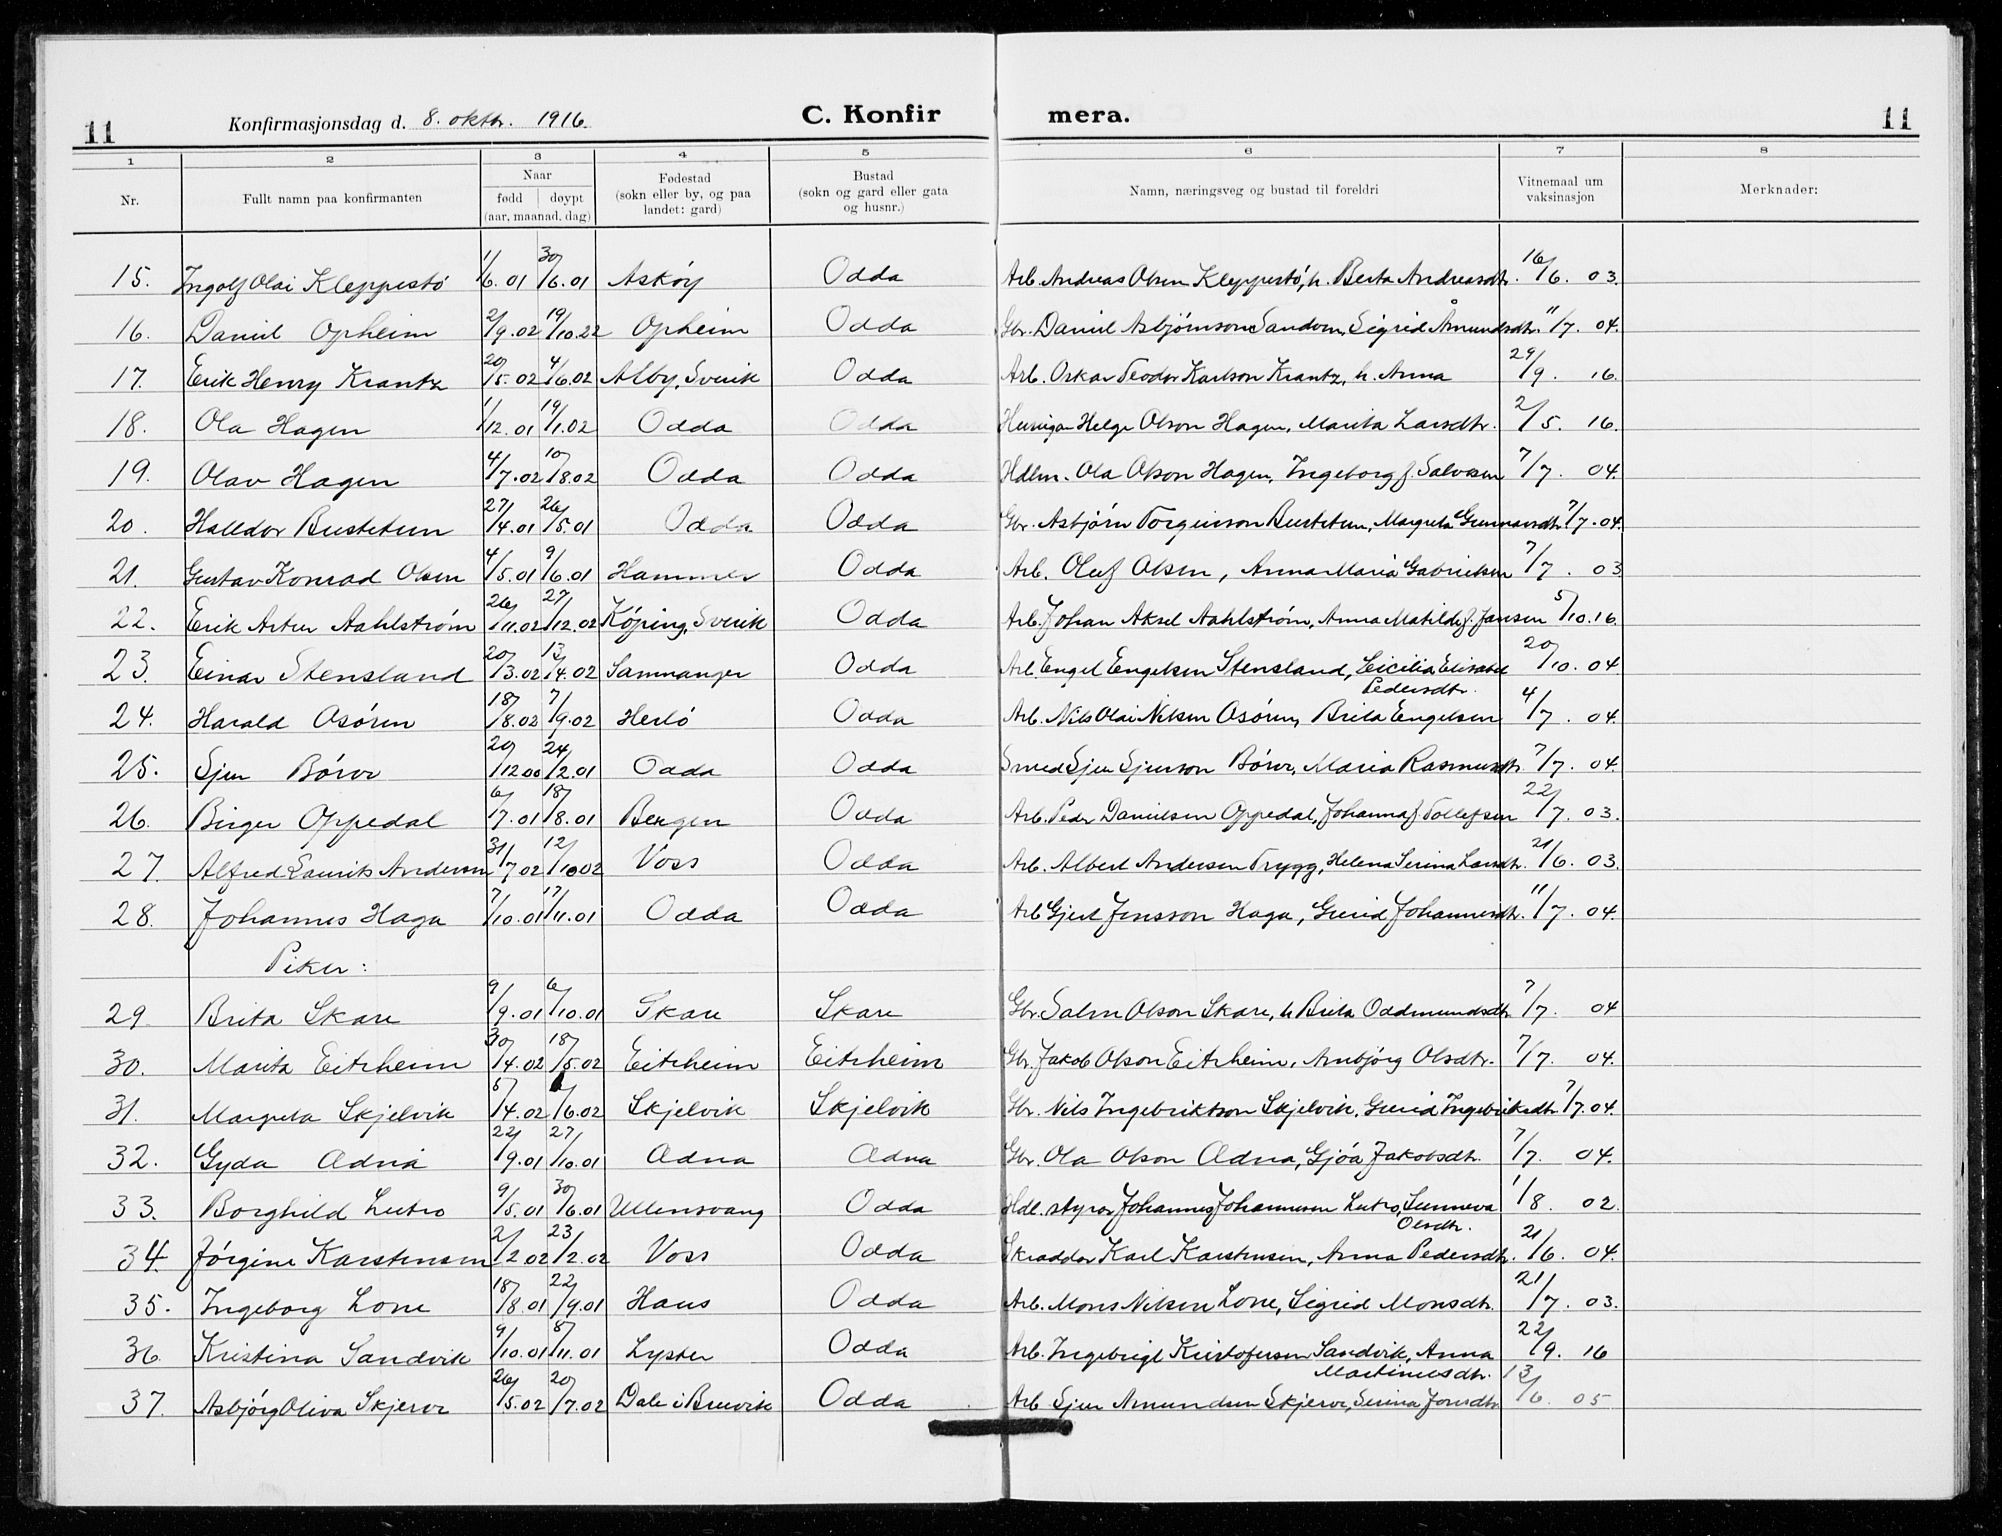 11 Konfirmasjonsdag d. 8. oktbr. 1916. C. Konfir mera. 11
1 2 3 4 5 6 7 8
Nr. Fullt namn paa konfirmanten Naar fødd døypt (aar, maanad, dag) Fødestad (sokn eller by, og paa landet: gard) Bustad (sokn og gard eller gata og husnr.) Namn, næringsveg og bustad til foreldri Vitnemaal um vaksinasjon Merknader:
15. Ingolf Olai Kleppestö 1/6.01 30/6.01 Asköy Odda Arb. Andreas Olsen Kleppestö, h. Berta Andreasdtr. 16/6. 03.
16. Daniel Opheim 2/9.02 19/10.22 Opheim Odda Gbr. Daniel Asbjörnson Sandven, Sigrid Åmundsdtr. 11/7. 04.
17. Erik Henry Krantz 20/5.02 4/6.02 Alby, Sverik Odda Arb. Oskar Teodor Karlson Krantz, h. Anna 29/9. 16.
18. Ola Hagen 1/12.01 19/1.02 Odda Odda Helge Olson Hagen, Marita Larsdtr. 2/5. 16.
19. Olav Hagen 4/7.02 10/8.02 Odda Odda Hdlm. Ola Olson Hagen, Ingeborg f. Salvesen 7/7. 04.
20. Halldor Bustetun 27/4.01 26/5.01 Odda Odda Gbr. Asbjørn Torgeirson Bustetun, Margreta Gunnarsdtr. 7/7. 04.
21. Gustav Konrad Olsen 4/5.01 9/6.01 Hammer Odda Arb. Oluf Olsen, Anna Maria Gabrielsen 7/7. 03
22. Erik Artur Aahlström 26/11.02 27/12.02 Köping, Sverik Odda Arb. Johan Aksel Aahlstrøm, Anna Matilde f. Jansen 5/10. 16.
23. Einar Stensland 20/3.02 13/4.02 Samnanger Odda Arb. Engel Engelsen Stensland, Cicilia Elisabet
Pedersdtr. 20/10. 04
24. Harald Osören 18/8.02 7/9.02 Herlö Odda Arb. Nils Olai Nilsen Osören, Brita Engelsen 4/7. 04.
25. Sjur Börve 20/12.00 24/2.01 Odda Odda Smed Sjur Sjurson Börve, Maria Rasmusdtr. 7/7. 04.
26. Birger Oppedal 6/7.01 18/8.01 Bergen Odda Arb. Peder Danielsen Oppedal, Johanna f Tollefsen 22/7. 03.
27. Alfred Laurits Andersen 31/7.02 12/10.02 Voss Odda Arb. Albert Andersen Trygg, Helena Serina Larsdtr. 21/6. 03.
28. Johannes Haga 7/10.01 17/11.01 Odda Odda Arb Gjert Jensson Haga, Gurid Johannesdtr. 11/7. 04.
Piker:
29. Brita Skare 9/9.01 6/10.01 Skare Skare Gbr. Salm Olson Skare, h Brita Oddmundsdtr 7/7. 04
30. Marita Eitrheim 30/4.02 18/5.02 Eitrheim Eitrheim Gbr. Jakob Olson Eitrheim, Arnbjörg Olsdtr. 7/7. 04.
31. Margreta Skjelvik 5/4.02 /6.02 Skjelvik Skjelvik Gbr. Nils Ingebriktson Skjelvik, Gurid Ingebriktsdtr 7/7. 04.
32. Gyda Ædna 22/9.01 27/10.01 Ædna Ædna Gbr. Ola Olson Ædna, Gjöa Jakobsdtr. 7/7. 04.
33. Borghild Lutro 9/5.01 30/6.01 Ullensvang Odda Hdl.styrar Johannes Johannesen Lutro, Sunneva
Olsdtr. 1/8. 02.
34. Jörgine Karstensen 2/2.02 23/2.02 Voss Odda Skraddar Karl Karstensen, Anna Pedersdtr. 21/6. 04.
35. Ingeborg Lone 18/8.01 22/9.01 Haus Odda Arb. Mons Nilsen Lone, Sigrid Monsdtr. 21/7. 03.
36. Kristina Sandvik 9/10.01 8/11.01 Lyster Odda Arb. Ingebrigt Kristofersen Sandvik, Anna
Martinusdtr. 22/9. 16
37. Asbjörg Oliva Skjerve 26/5.02 20/7.02 Dale i Bruvik Odda Arb Sjur Amundsen Skjerve, Serina Jonsdtr. 13/6. 05